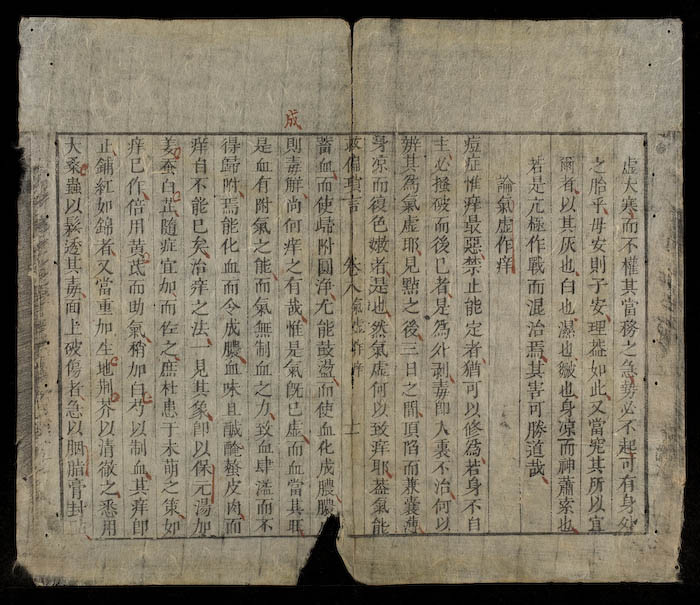 虛大寒而不權其當務之急勢必不起可有身
之胎乎毋安則子安理葢如此又當究其所以宜
爾者以其灰也白也濕也皺也身凉而神蕭索也
若是亢極作戰而混治焉其害可勝道哉
論氣虛作痒
痘症惟痒最惡禁止能定者猶可以修為若身不自
主必搔破而後已者是為外剥毒即入裏不治何以
辨其為氣虛耶見點之後三日之間頂陷而兼囊薄
身凉而復色嫩者是也然氣虛何以致痒耶葢氣能
救偏瑣言 卷八 氣虛作痒 十一
蓄血而使歸附圓淨尤能鼓盪而使血化成膿膿
則毒解尚何痒之有哉惟是氣旣已虛而血當其旺
是血有附氣之能而氣無制血之力致血肆濫而不
得歸附焉能化血而令成膿血味且鹹醃螫皮肉而
痒自不能已矣治痒之法一見其象即以保元湯加
姜蚕白芷隨症宜加而佐之庶杜患于未萌之策如
痒已作倍用黃茋而助氣稍加白芍以制血其痒即
止鋪紅如錦者又當重加生地荆芥以清徹之悉用
大桑蟲以鬆透其毒面上破傷者急以胭脂膏封
成